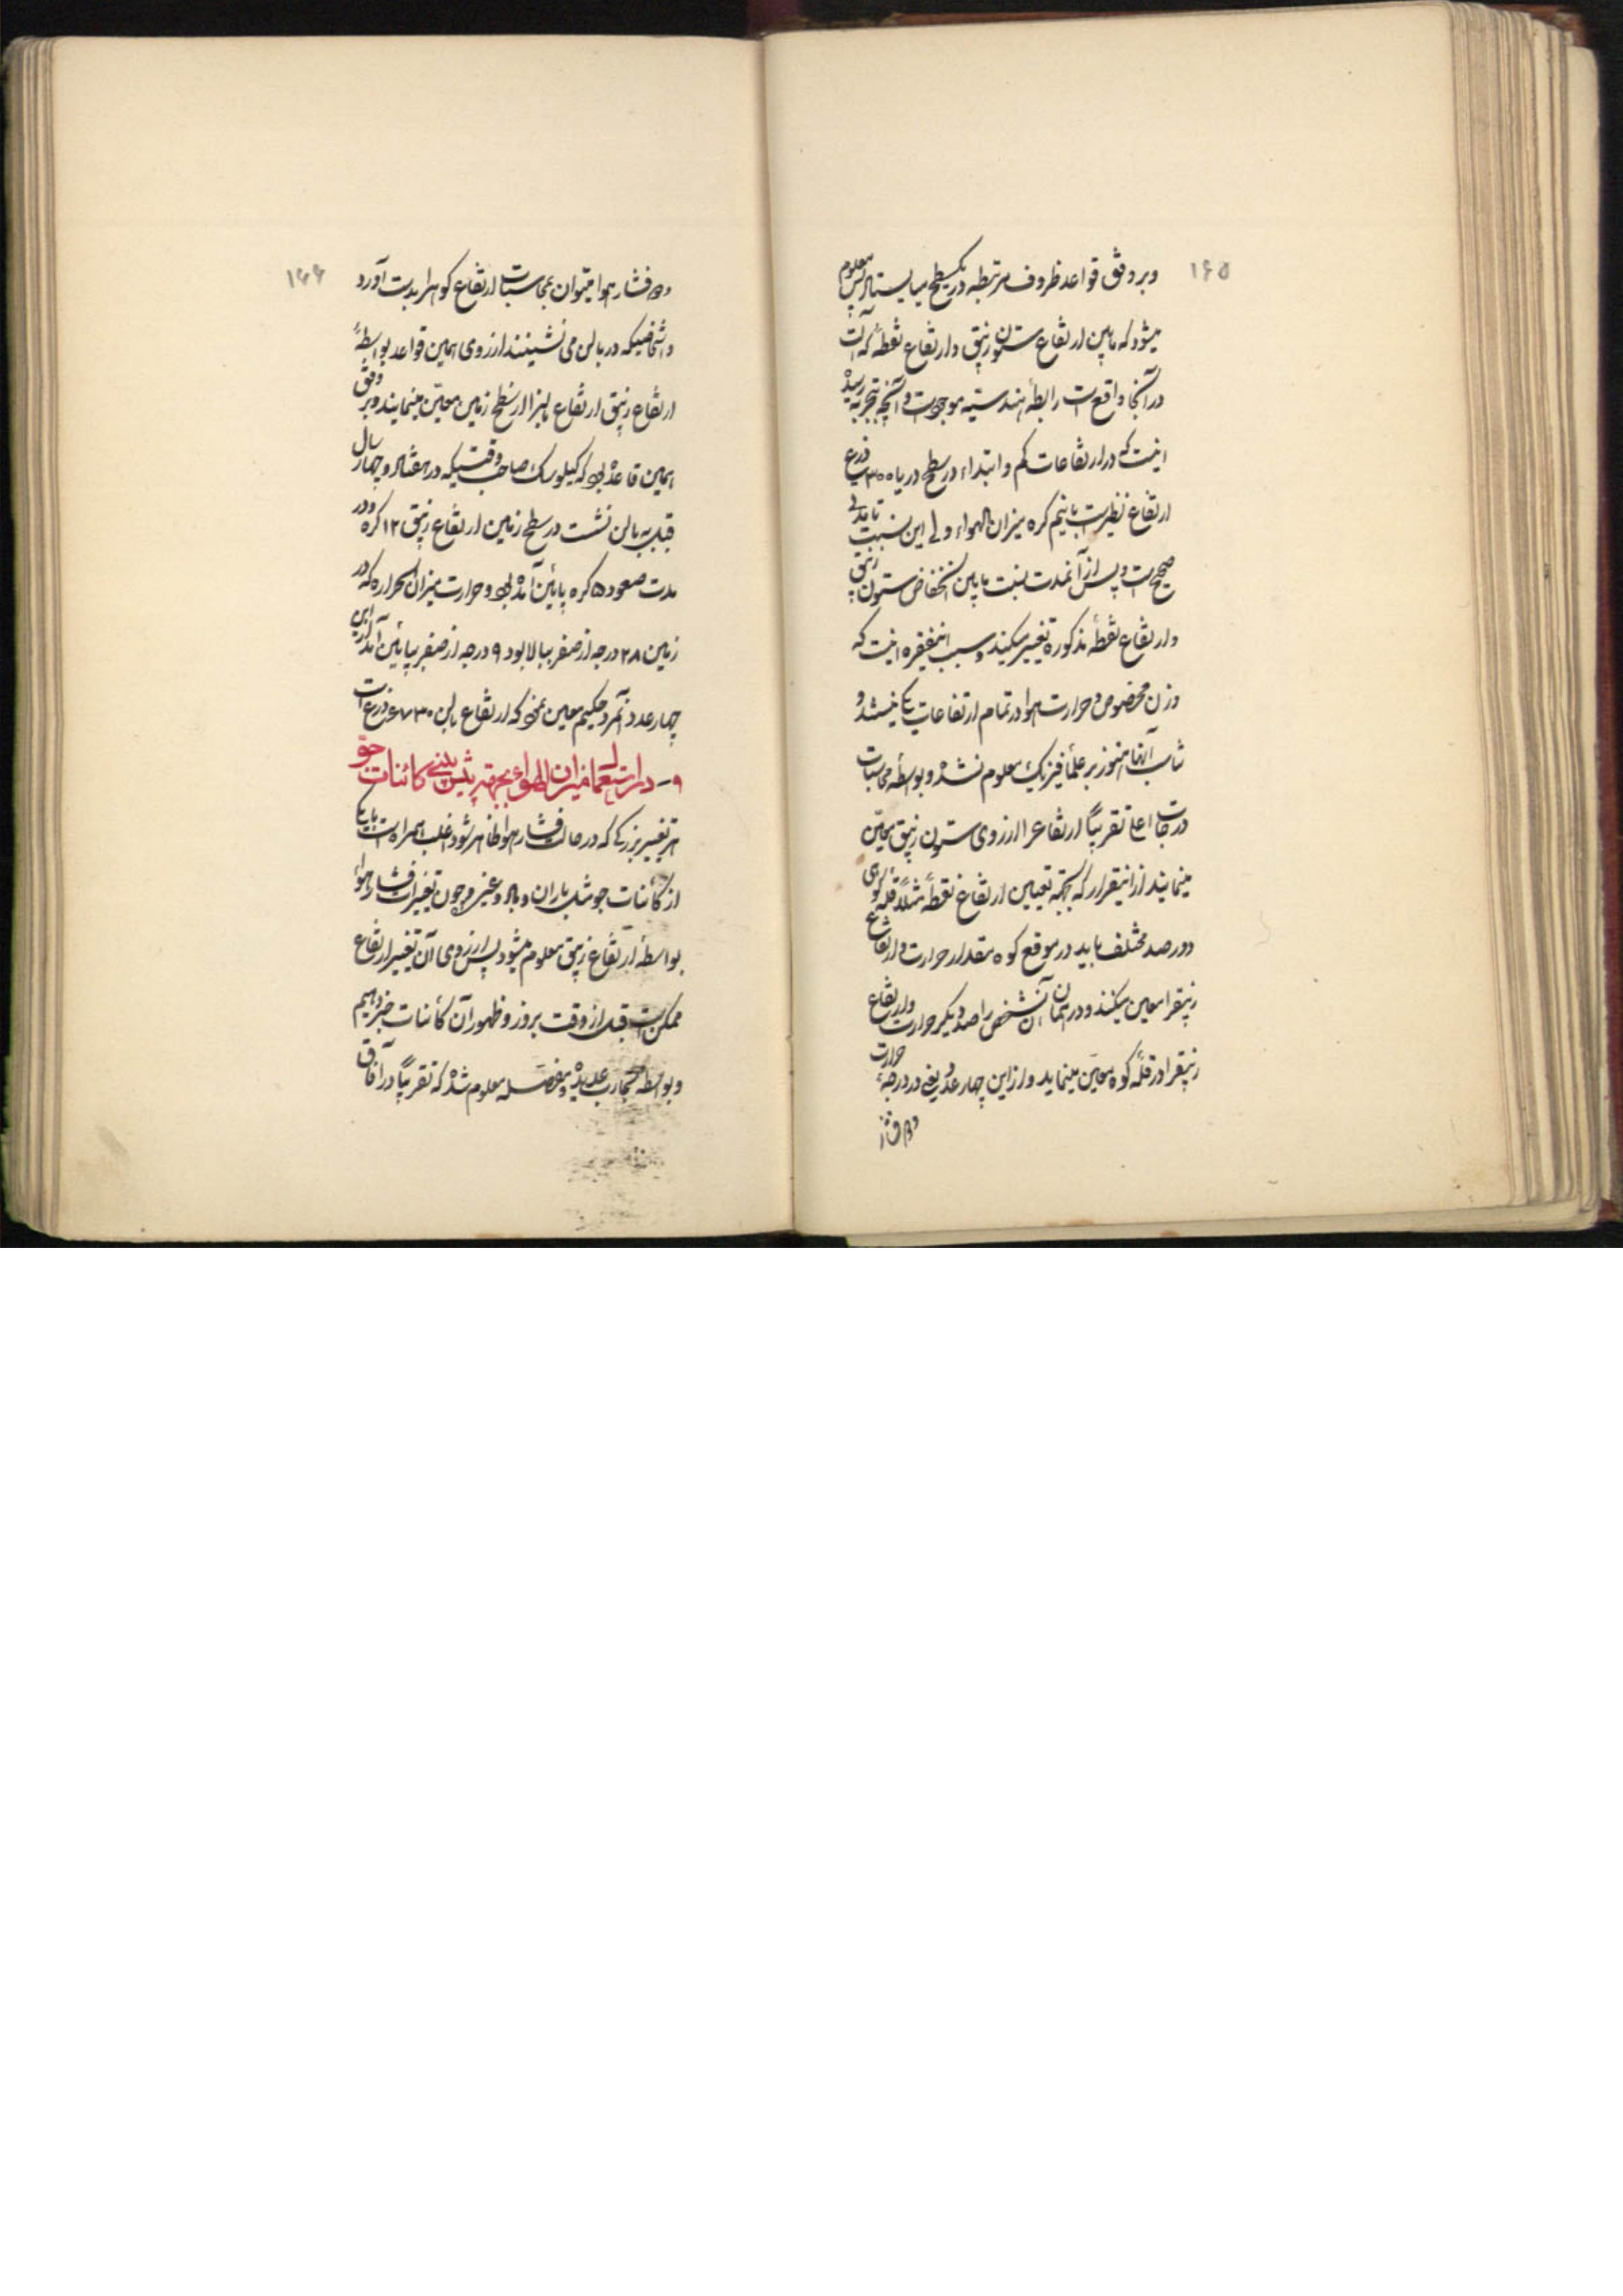 ۱۶۵
وبر وفق قواعد ظروف مرتبطه در یکسطح میایستد پس معلوم
میشود که مابین ارتفاع ستون زیبق و ارتفاع نقطهٔ که آلت
در آنجا واقع است رابطهٔ هندسیّه موجود است و آنچه بتجربه رسیده
اینست که در ارتفاعات کم و ابتداء در سطح دریا ۳۰۰۰ ذرع
ارتفاع نظیر است با نیم کره میزان الهواء ولی این نسبت تا مدتی
صحیح است و پس از آنمدت نسبت مابین انخفاض ستون زیبق
و ارتفاع نقطهٔ مذکوره تغییر میکند و سبب اینفقره اینست که
وزن مخصوص و حرارت هوا در تمام ارتفاعات یکی نیستند و
تناسب آنها هنوز بر علمای فیزیک معلوم نشده و بواسطه محاسبات
درجات اعلی تقریباً ارتفاع را از روی ستون زیبق معیّن
مینمایند از اینقرار که بجهة تعیین ارتفاع نقطه مثلاً قلّه کوهی
دو رصد مختلف باید در موقع کوه مقدار حرارت و ارتفاع
زیبق را معین میکنند و در همان آن شخص راصد دیگر حرارت و ارتفاع
زیبق را در قلّه کوه معیّن مینماید و از این چهار عدد یعنی دو درجهٔ حرارت
و دو فشار
۱۶۶
و دو فشار هوا میتوان بمحاسبات ارتفاع کوه را بدست آورد
و اشخاصیکه در بالن می نشینند از روی همین قواعد بواسطهٔ
ارتفاع زیبق ارتفاع بالن را از سطح زمین معیّن مینمایند و بر وفق
همین قاعده بود که کیلوسک صاحب وقتیکه در هفتاد و چهار سال
قبل به بالن نشست در سطح زمین ارتفاع زیبق ۱۲ کره و در
مدت صعود ۵ کره پائین آمده بود و حرارت میزان الحراره که در
زمین ۲۸ درجه از صفر ببالا بود ۹ درجه از صفر بپائین آمد از این
چهار عدد آنمرد حکیم معین نمود که ارتفاع بالن ۶۷۳۰ ذرع است
۹- در استعمال میزان الهواء بجهة پیش بینی کائنات جوّ
هر تغییر بزرگی که در حالت فشار هوا ظاهر شود اغلب همراه است با یکی
از کائنات جو مثل باران و باد و غیره و چون تغییرات فشار هوا
بواسطهٔ ارتفاع زیبق معلوم میشود پس از روی آن تغییر ارتفاع
ممکن است قبل از وقت بروز و ظهور آن کائنات خبر دهیم
و بواسطه تجارب عدیده و مفصله معلوم شده که تقریباً در آفاق